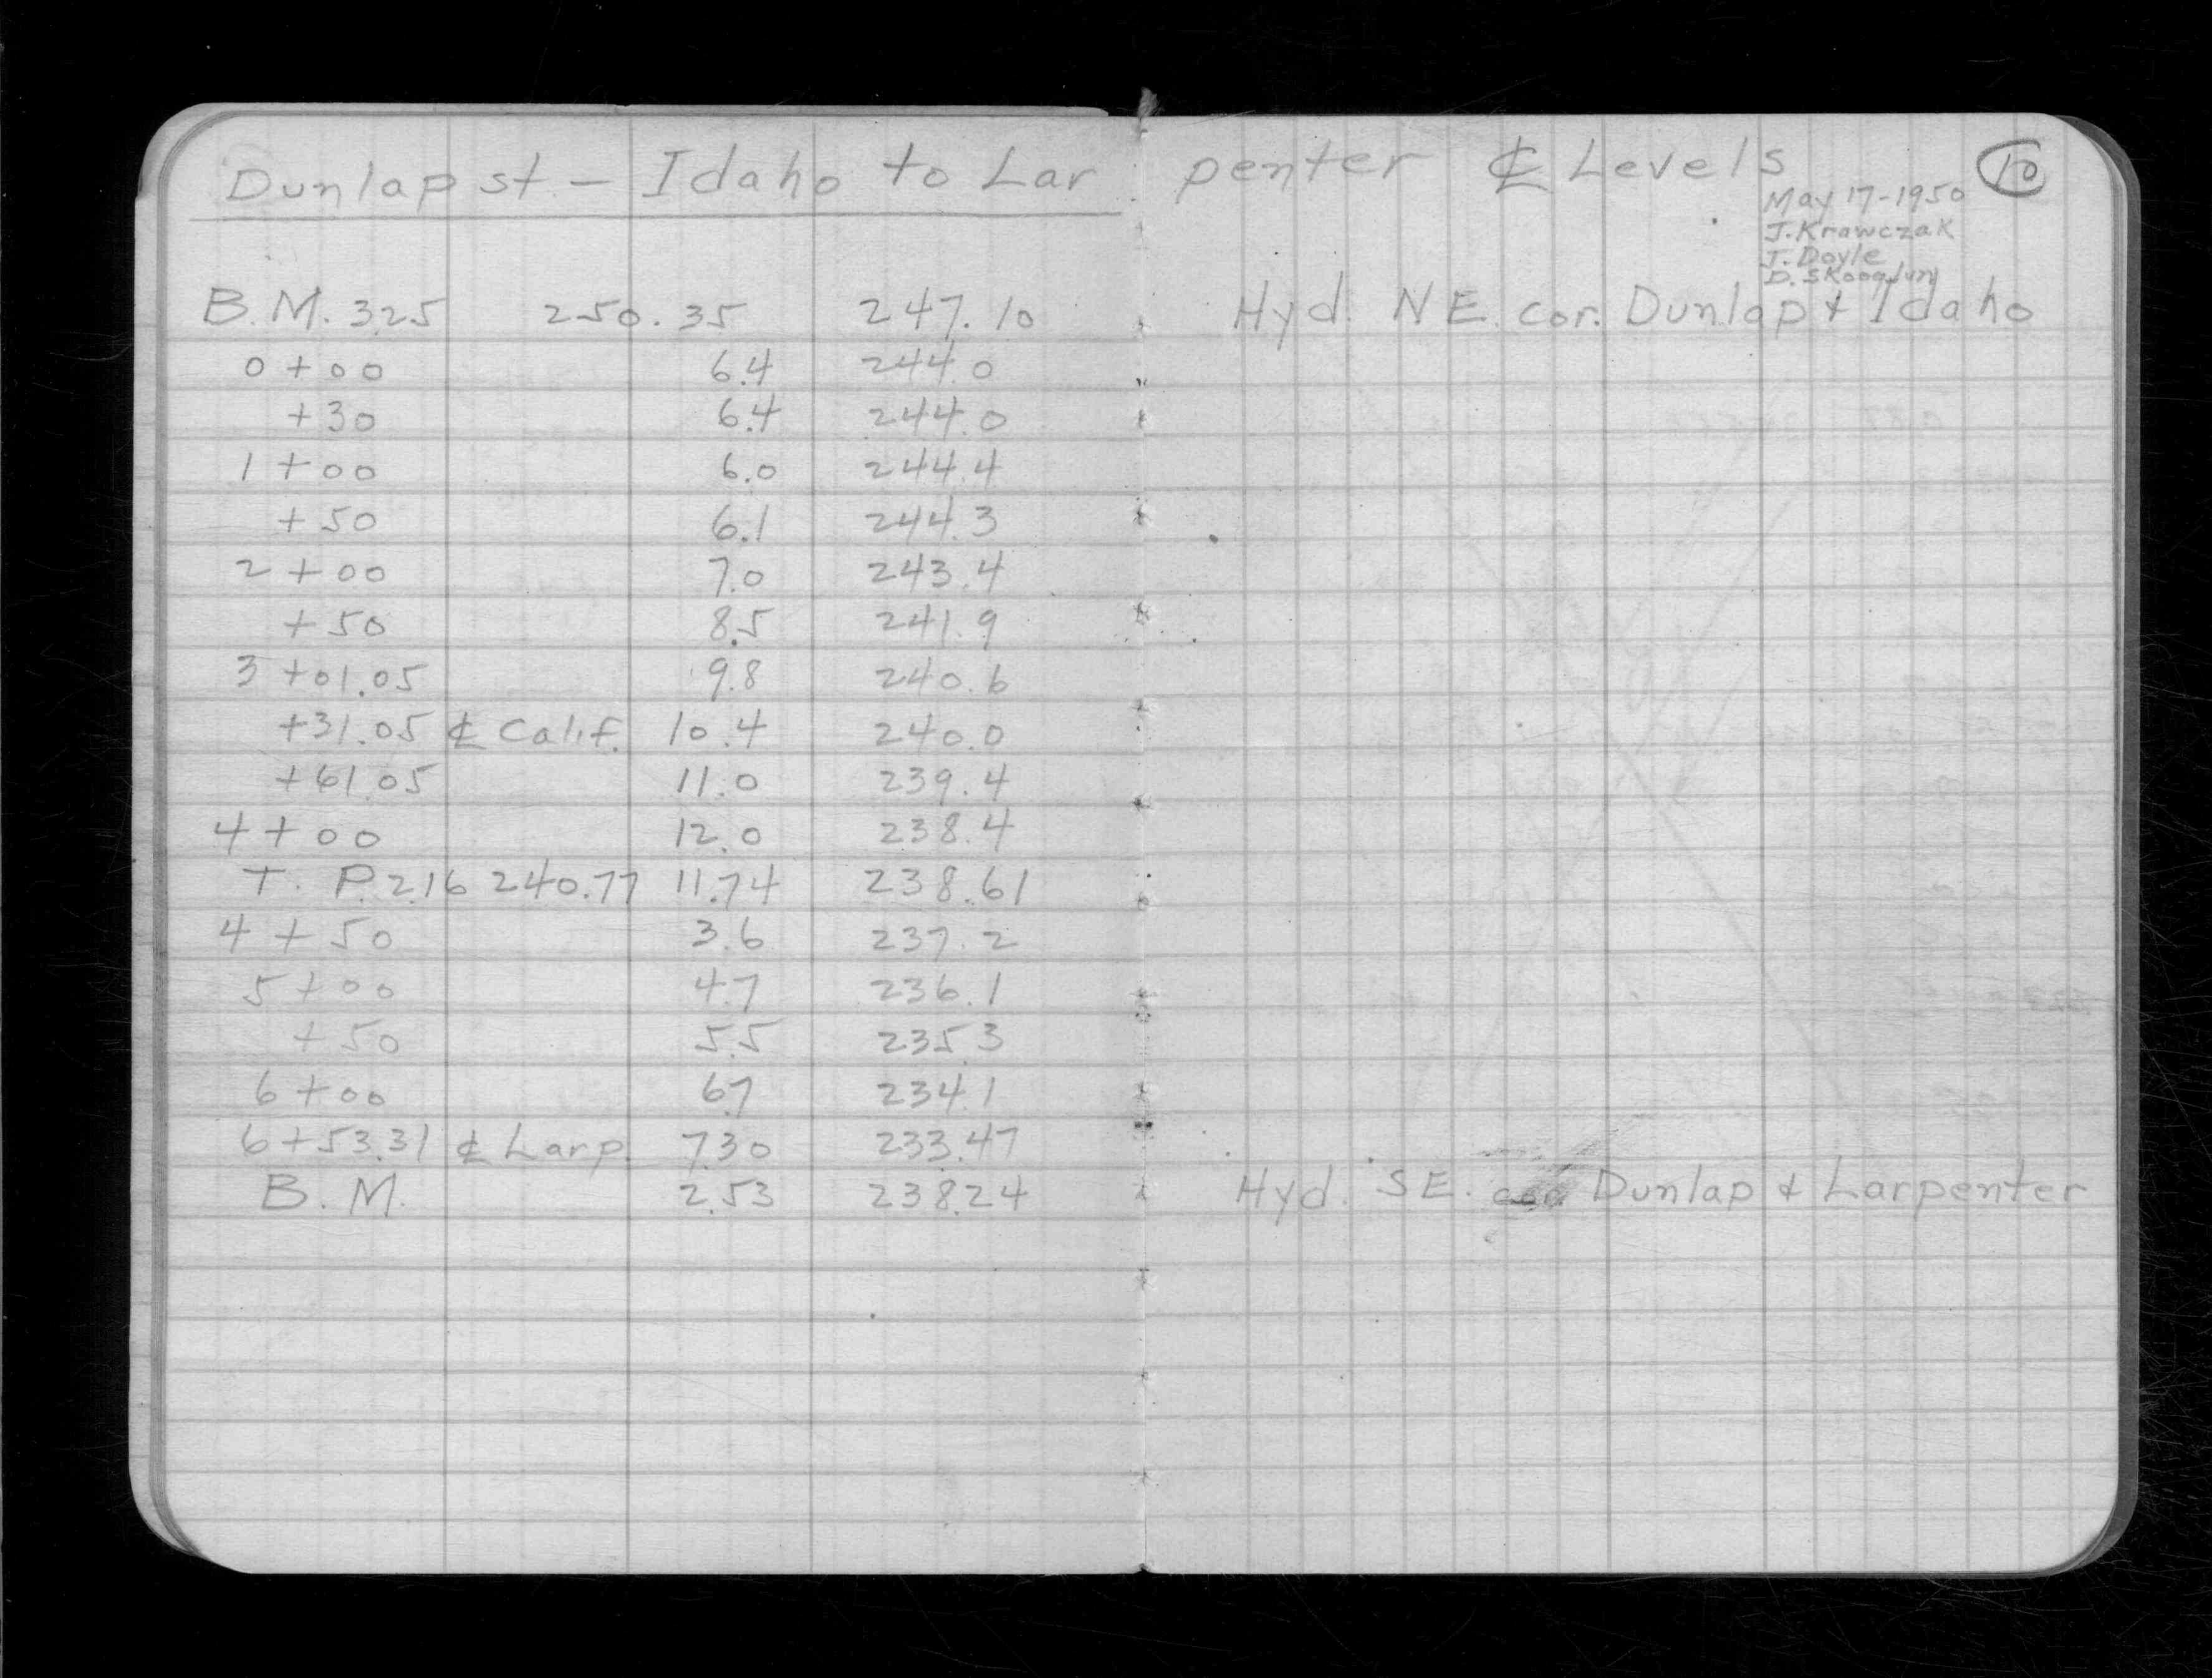 Dunlap st. — Idaho to Larpenter ℄ Levels
10
May 17-1950
J. Krawczak
J. Doyle
D. Skooglun
B.M. 3.25 250.35 247.10 Hyd. N E. cor. Dunlap & Idaho
0+00 6.4 244.0
+30 6.4 244.0
1+00 6.0 244.4
+50 6.1 244.3
2+00 7.0 243.4
+50 8.5 241.9
3+01.05 9.8 240.6
+31.05 ℄ Calif. 10.4 240.0
+61.05 11.0 239.4
4+00 12.0 238.4
T. P. 2.16 240.77 11.74 238.61
4+50 3.6 237.2
5+00 4.7 236.1
+50 5.5 235.3
6+00 6.7 234.1
6+53.31 ℄ Larp. 7.30 233.47
B.M. 2.53 238.24 Hyd. S E. cor. Dunlap & Larpenter